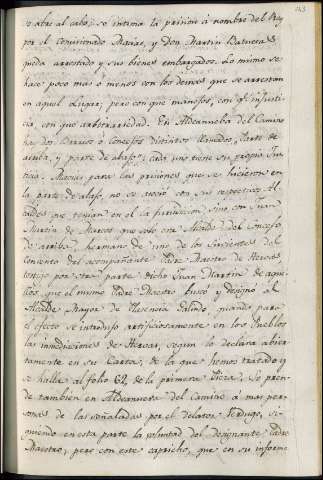 143
se abre al cabo; se intima la prision à nombre del Rey
por el Comisionado Macias, y Don Martin Batuecas
queda arrestado y sus bienes embargados. Lo mismo se
hace poco mas ò menos con los demas que se arrestan
en aquel Lugar; pero con que manosos, con qe. injusti-
cia, con que arbitrariedad. En Aldeanueba del Camino
hay dos Barrios ò Concejos distintos llamados, Parte de
arriba, y parte de abajo; cada uno tiene su propia Jus-
ticia. Macias para las prisiones que se hicieron en
la parte de abajo, no se asoció con sus respectivos Al-
caldes que tenian en el la jurisdiccion, sino con Juan
Martin de Marcos que solo era Alcalde del Concejo
de arriba, hermano de uno de los Sirvientes del
Convento del acompañante Padre Maestro de Hervas
testigo por otra parte dicho Juan Martin de aque-
llos que el mismo Padre Maestro buscó y designó al
Alcalde Mayor de Plasencia Galindo, quando para
el efecto se introdujo artificiosamente en los Pueblos
las inmediaciones de Hervas, segun lo declara abier-
tamente en su Carta, de la que hemos tratado y
se halla al folio 62, de la primera Pieza. Se pren-
de tambien en Aldeanueva del Camino à mas per-
sonas de las señaladas por el delator Verdugo, si-
guiendo en esta parte la voluntad del designante Padre
Maestro; pero con este capricho, que en su informe